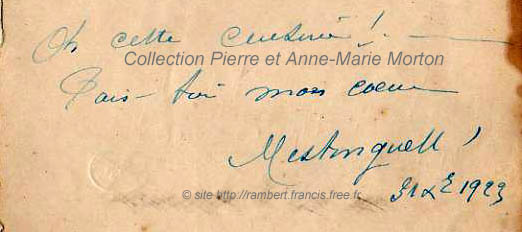 Oh cette cuisine !
Collection Pierre et Anne-Marie Morton
Tais-toi mon coeur
Mistinguett
© site http://rambert.francis.free.fr
31 Xe 1923